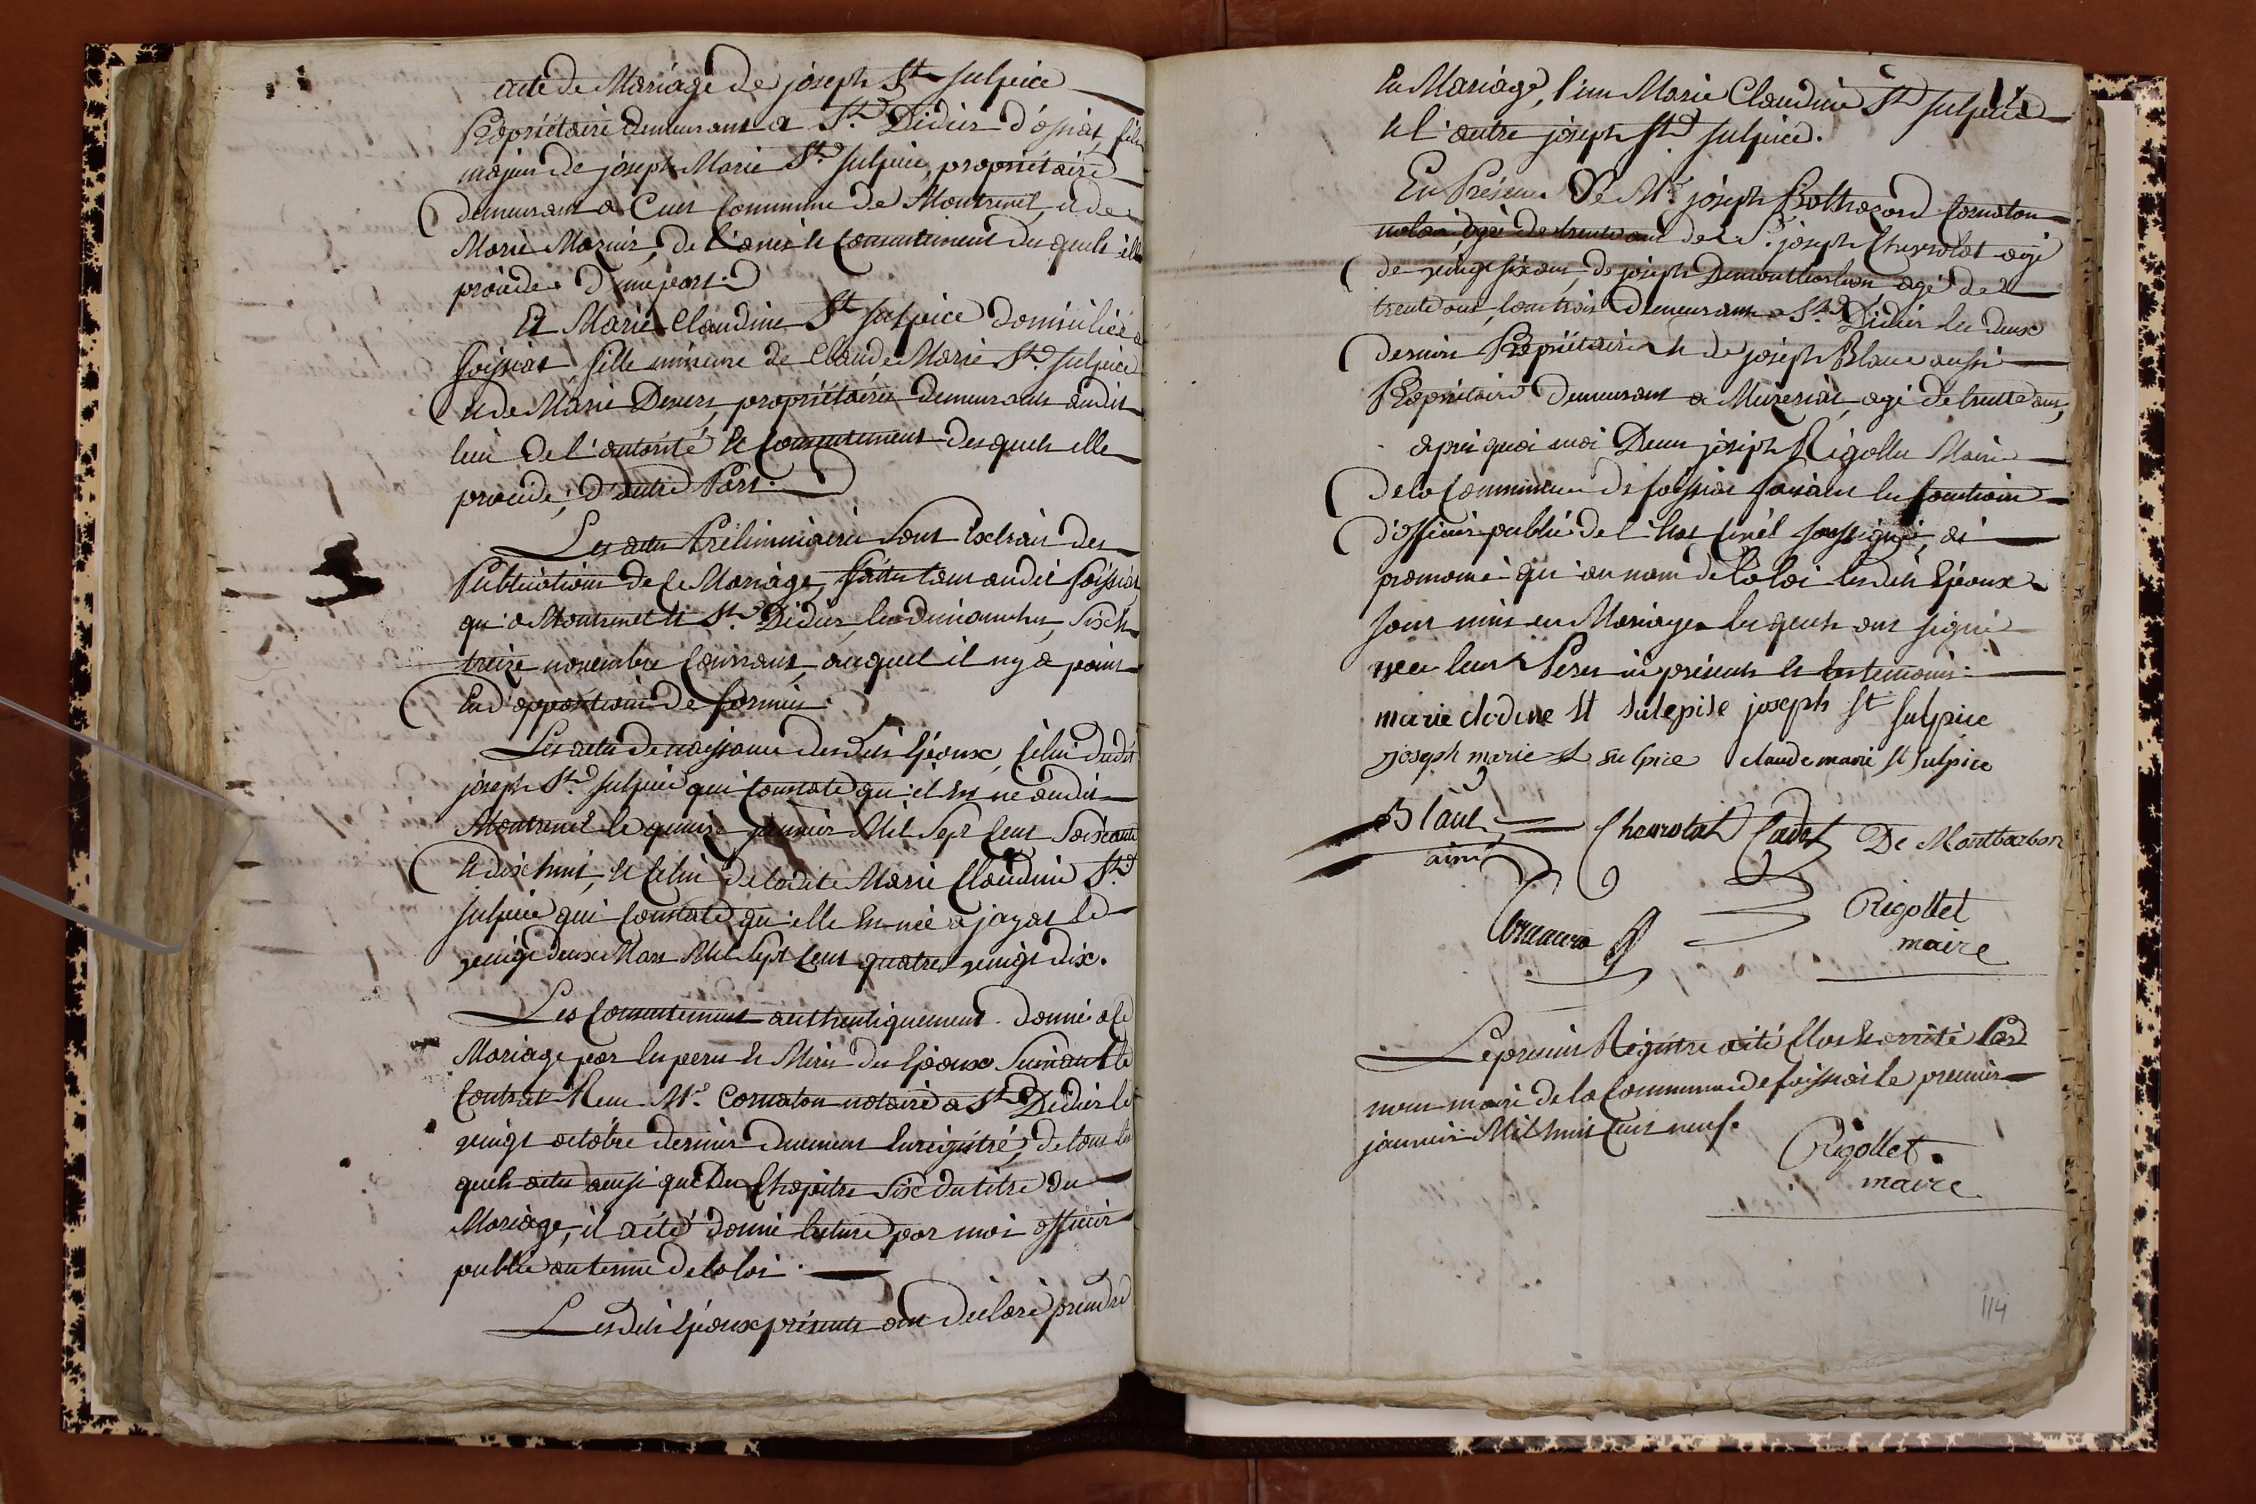 acte de Mariage de joseph St Sulpice
Propriétaire demeurant a St. Didier d'ossiat, fils
majeur de joseph Marie St. Sulpice, propriétaire
demeurant a Cuet Commune de Montrevel, et de
Marie de l'avis le Consentement des quels il
procède d'une part.
Et Marie Claudine St Sulpice domiciliée a
foissiat, fille mineure de Claude Marie St. Sulpice
et de Marie propriétaires demeurants audit
lieu de l'autorité et Consentement des quels elle
procede, d'autre Part.
Les actes Préliminaires sont Extrait des
Publications de Ce Mariage, faites tant audit foissiat
qu'a Montrevel et St. Didier, les dimanches, Six et
treize novembre Courrant, auquel il ny a point
Eu d'opposition de formée.
Les actes de naissance desdits Epoux, Celui dudit
joseph St. Sulpice qui Constate qu'il Est né audit
Montrevel le quinze janvier Mil Sept Cent Soixante
et dix huit, et Celui de ladite Marie Claudine St.
Sulpice qui Constate qu'elle Est née a jayat le
vingt deux Mars Mil Sept Cent quatre vingt dix.
Les Consentement authentiquement donné a Ce
Mariage par les peres et Meres des Epoux Suivant le
Contrat Reçu Mr. Cornaton notaire a St. Didier le
vingt octobre dernier duement Enregistré, de tous les
quels actes ainsi que Du Chapitre Six du titre du
Mariage, il a été donné lecture par moi officier
public au terme de la loi.
Les dits Epoux présents ont déclaré prendre
En Mariage, l'un Marie Claudine St Sulpice
et l'autre joseph St. Sulpice.
En Présence De Mr. joseph Cornaton
notaire, agé de trente ans de Sr. joseph Chevrolat agé
de vingt six ans, de joseph Demontbarbon agé de
trente ans, tous trois demeurants a St. Didier les deux
derniers Propriétaires et de joseph Blanc aussi
Propriétaire demeurant a agé de trente ans,
apres quoi moi Denis joseph Rigollet Maire
de la Commune de foissiat faisant les fonctions
d'officier public de l'Etat Civil soussigné, ai
prononcé qu'au nom de la loi lesdits Epoux
sont unis en Mariage lesquels ont signé
avec leurs Peres ici présents et les temoins
marie clodine st sulepise joseph st Sulpice
joseph marie st sulpice claude marie st Sulpice
Blanc Chevrolat Cadet De Montbarbon
ainé
Rigollet
maire
Le présent Régistre a été Clos et arrêté Par
nous maire de la Commune de foissiat le premier
janvier Mil huit Cent neuf.
Rigollet
maire
114